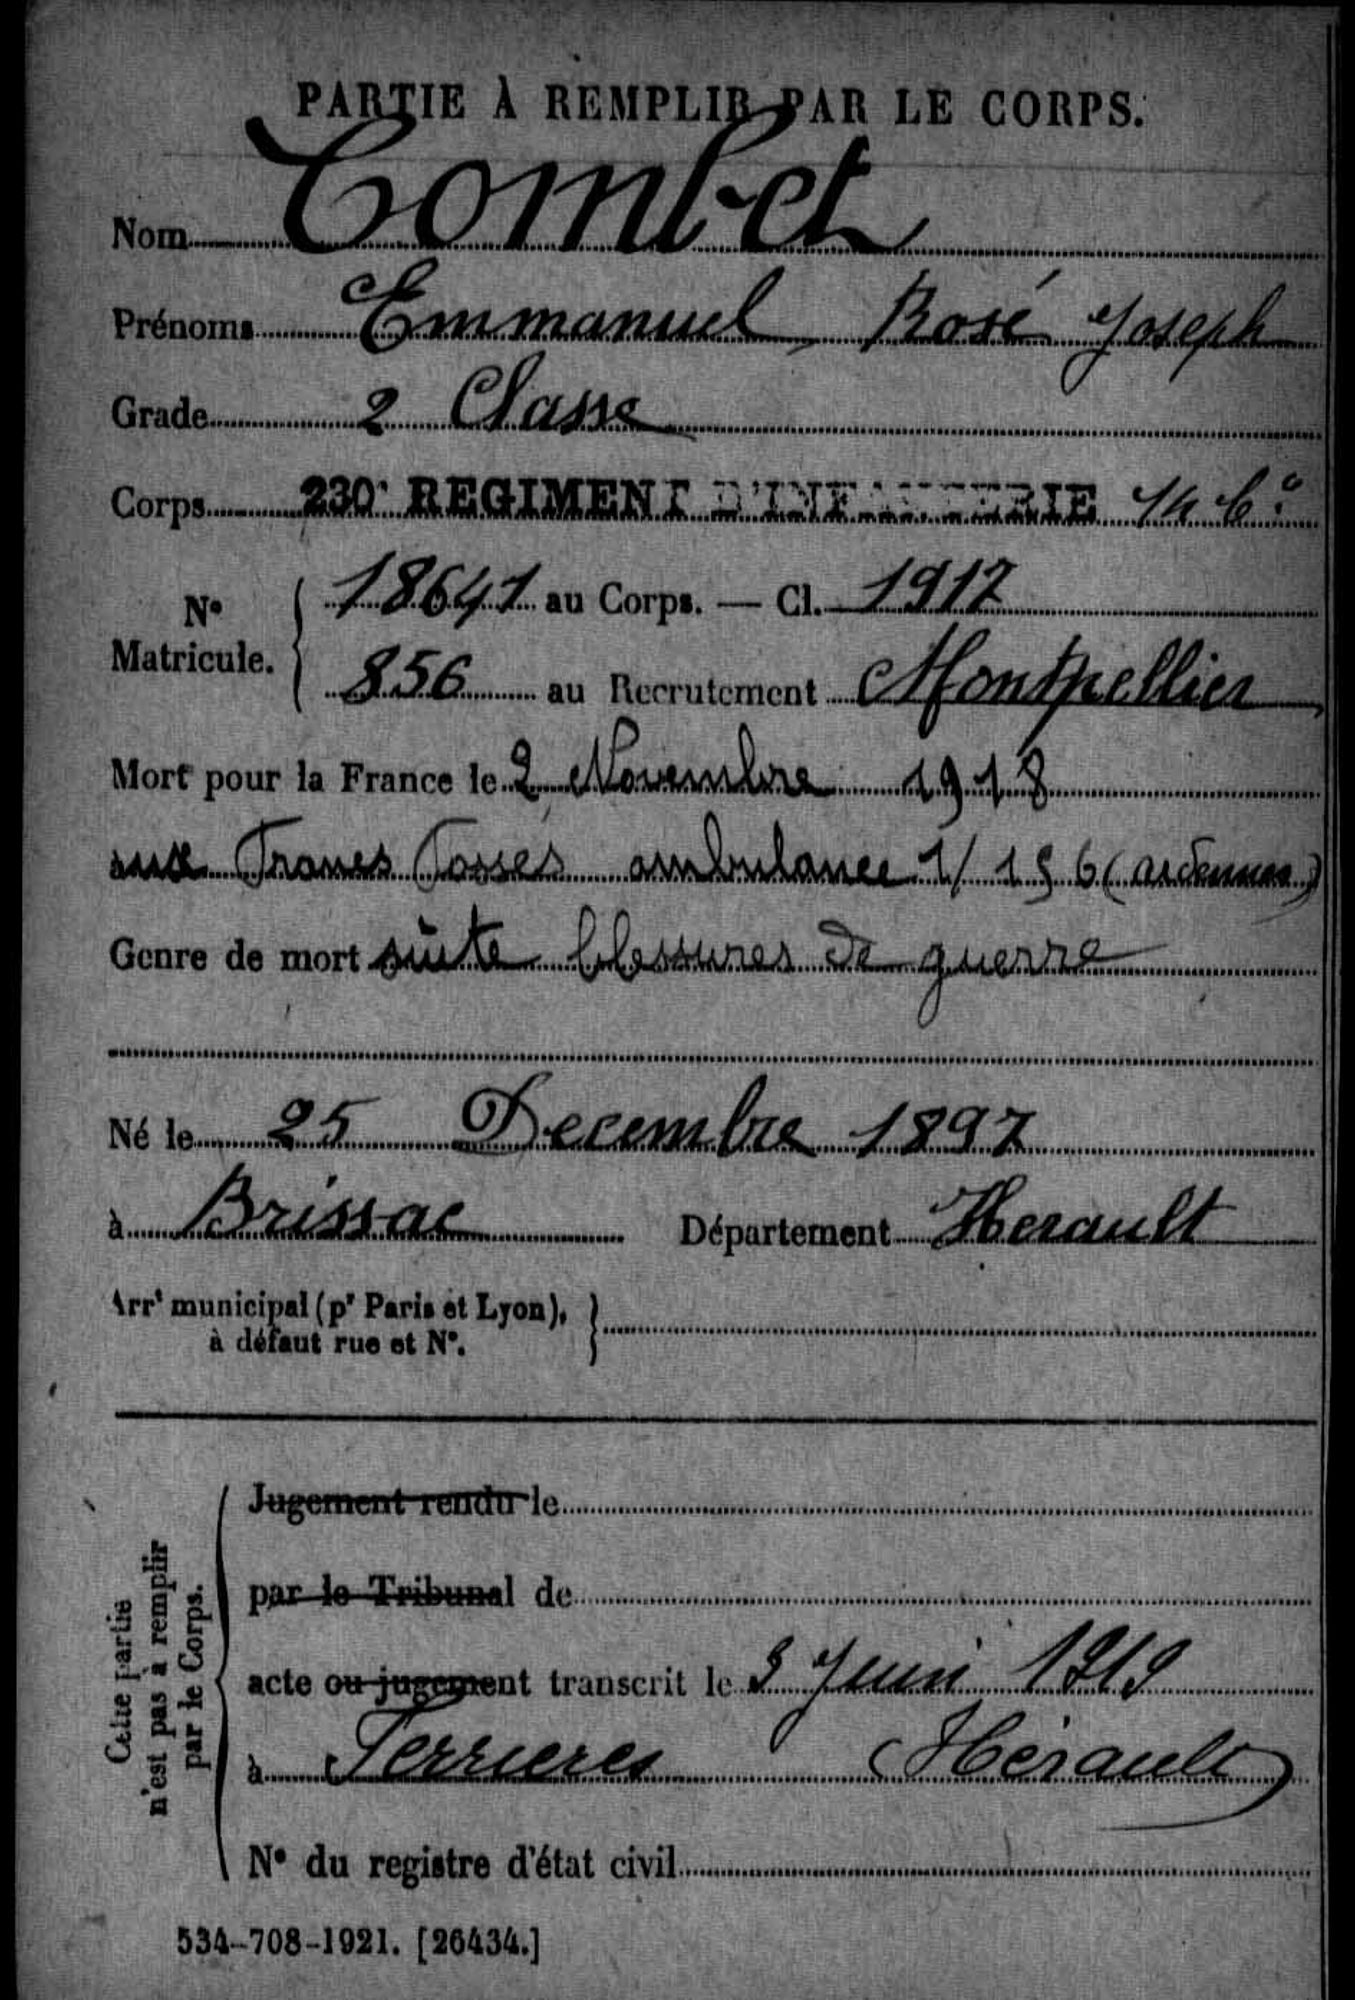 PARTIE À REMPLIR PAR LE CORPS.
Nom Combet
Prénoms Emmanuel Rosé Joseph
Grade 2 Classe
Corps 230e REGIMENT D'INFANTERIE 14 Cie
No Matricule. 18641 au Corps. — Cl. 1917
856 au Recrutement Montpellier
Mort pour la France le 2 Novembre 1918
aux Francs Fossés ambulance 1/156 (ardennes)
Genre de mort suite blessures de guerre
Né le 25 Decembre 1897
à Brissac Département Herault
Arrt municipal (pr Paris et Lyon), à défaut rue et No.
Cette partie n'est pas à remplir par le Corps.
Jugement rendu le
par le Tribunal de
acte ou jugement transcrit le 3 Juin 1919
à Ferrieres (Hérault)
No du registre d'état civil
534-708-1921. [26434.]